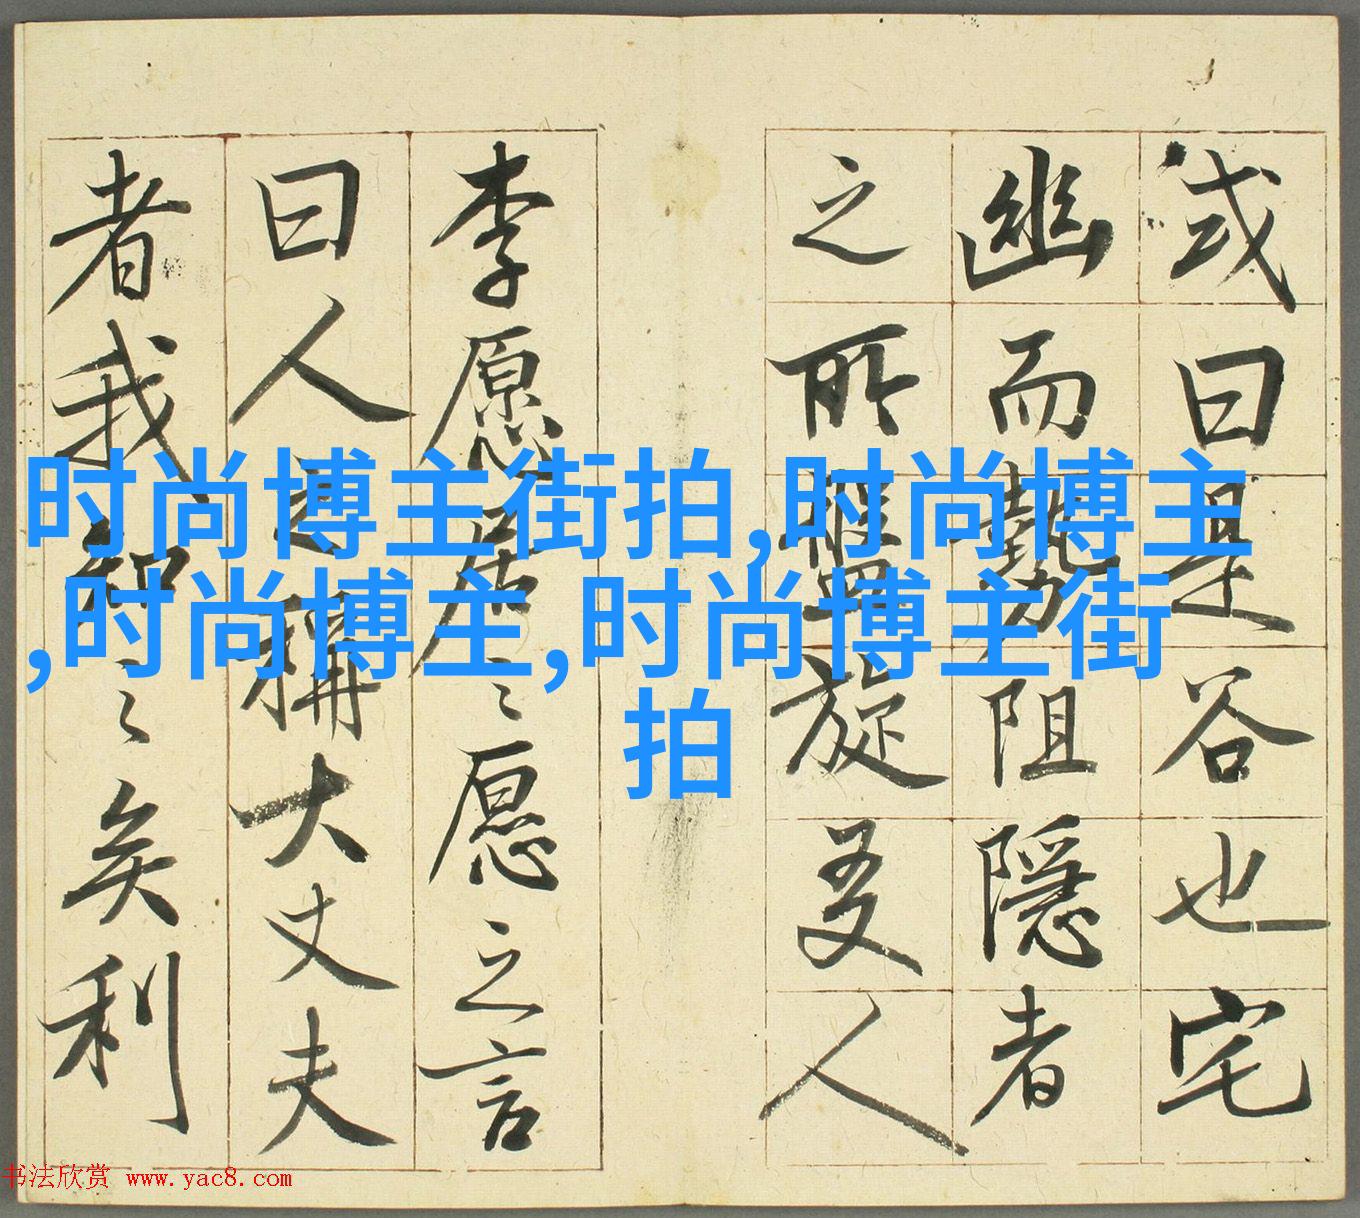 或曰是谷也宅
幽而勢阻隱者
之所盤旋友人
李愿居〻愿之言
曰人之稱大丈夫
者我知〻矣利
时尚博主街拍,时尚博主
,时尚博主,时尚博主街
拍
书法欣赏 www.yac8.com